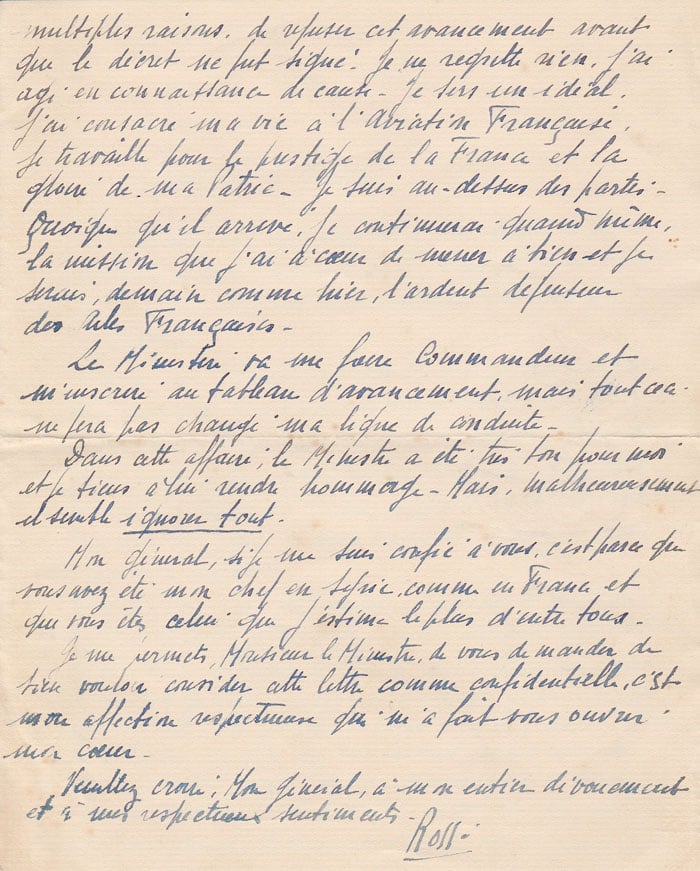 multiples raisons, de refuser cet avancement avant
que le décret ne fut signé. Je ne regrette rien, j'ai
agi en connaissance de cause - Je sers un idéal.
J'ai consacré ma vie à l'Aviation Française.
Je travaille pour le prestige de la France et la
gloire de ma Patrie - Je suis au-dessus des partis -
Quoique qu'il arrive, je continuerai quand même,
la mission que j'ai à cœur de mener à bien et je
serais, demain comme hier, l'ardent défenseur
des Ailes Françaises -
Le Ministère va me faire Commandeur et
m'inscrire au tableau d'avancement, mais tout cela
ne fera pas changé ma ligne de conduite -
Dans cette affaire, le Ministre a été très bon pour moi
et je tiens à lui rendre hommage - Mais, malheureusement
il semble ignorer tout.
Mon général, si je me suis confié à vous, c'est parce que
vous avez été mon chef en Syrie, comme en France et
que vous êtes celui que j'estime le plus d'entre tous -
Je me permets, Monsieur le Ministre, de vous demander de
bien vouloir considérer cette lettre comme confidentielle, c'est
mon affection respectueuse qui m'a fait vous ouvrir
mon cœur -
Veuillez croire, Mon général, à mon entier dévouement
et à mes respectueux sentiments -
Rossi